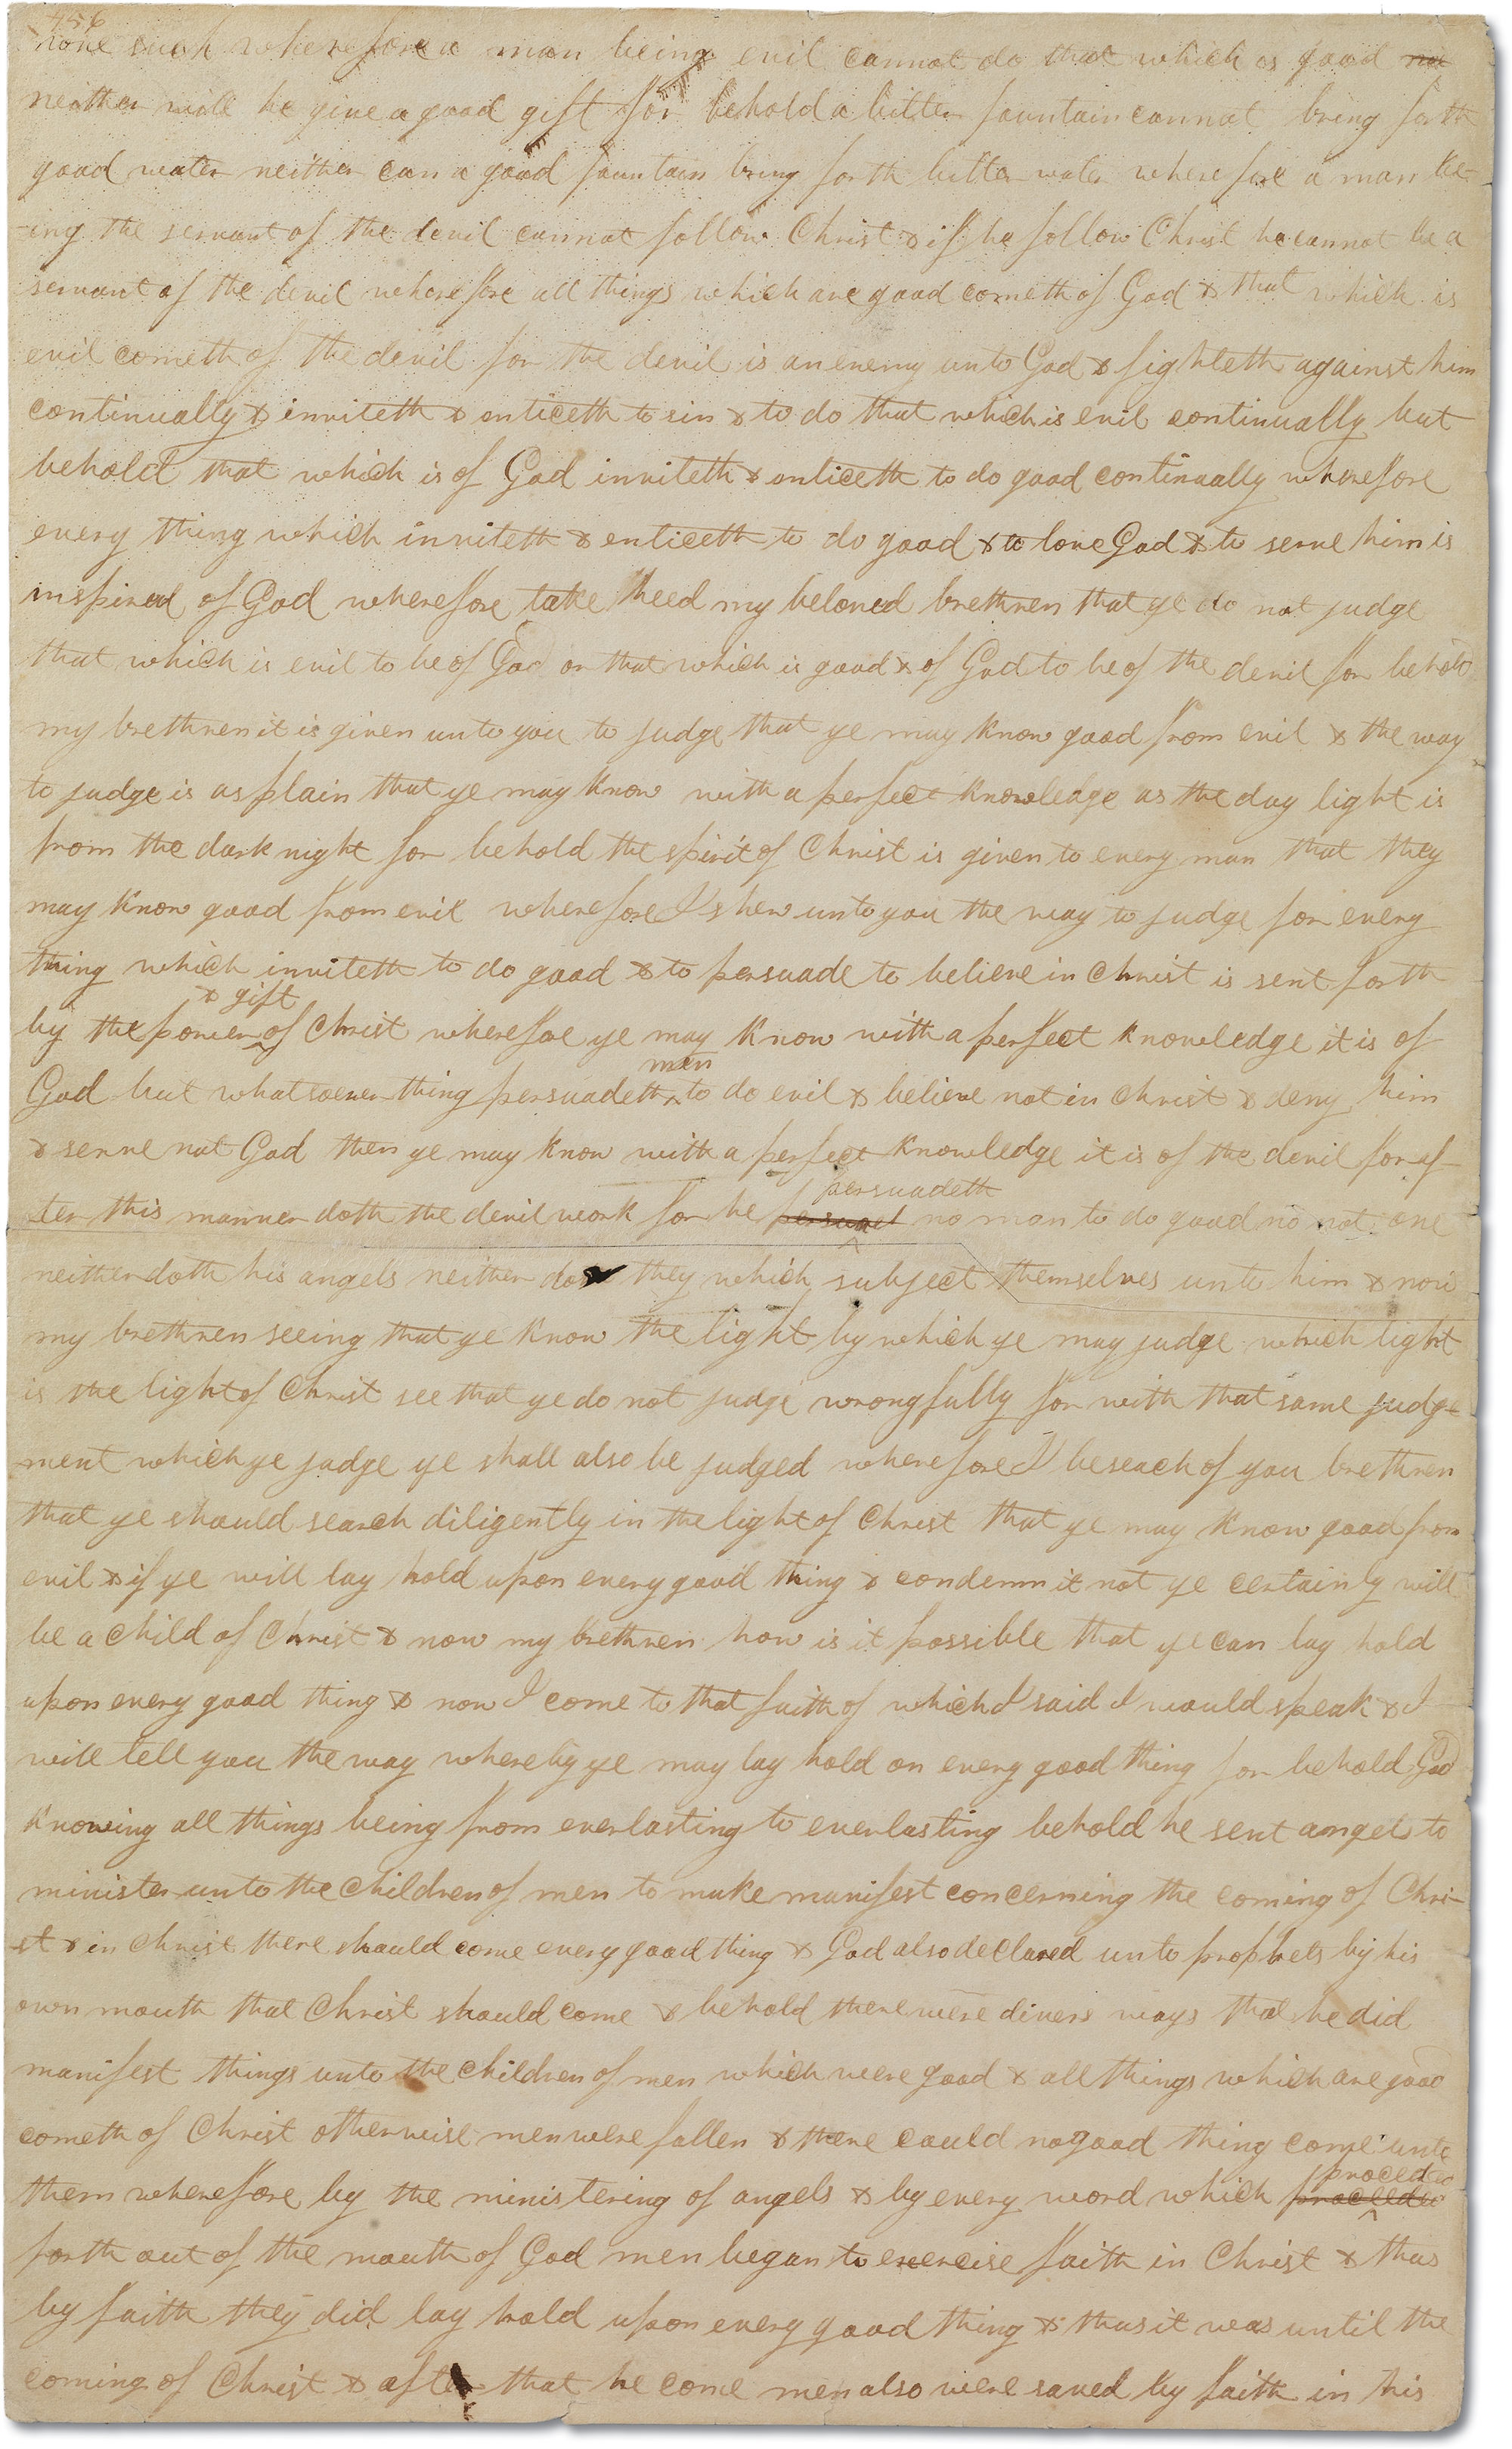 456
none such wherefore a man being evil cannot do that which is good no
neither will he give a good gift for behold a bitter fountain cannot bring forth
good water neither can a good fountain bring forth bitter water wherefore a man be-
-ing the servant of the devil cannot follow Christ & if he follow Christ he cannot be a
servant of the devil wherefore all things which are good cometh of God & that which is
evil cometh of the devil for the devil is an enemy unto God & fighteth against him
continually & inviteth & enticeth to sin & to do that which is evil continually but
behold that which is of God inviteth & enticeth to do good continually wherefore
every thing which inviteth & enticeth to do good & to love God & to serve him is
inspired of God wherefore take heed my beloved brethren that ye do not judge
that which is evil to be of God or that which is good & of God to be of the devil for behold
my brethren it is given unto you to judge that ye may know good from evil & the way
to judge is as plain that ye may know with a perfect knowledge as the day light is
from the dark night for behold the spirit of Christ is given to every man that they
may know good from evil wherefore I shew unto you the way to judge for every
thing which inviteth to do good & to persuade to believe in Christ is sent forth
& gift
by the power of Christ wherefore ye may know with a perfect knowledge it is of
men
God but whatsoever thing persuadeth to do evil & believe not in Christ & deny him
& serve not God then ye may know with a perfect knowledge it is of the devil for af-
persuadeth
ter this manner doth the devil work for he no man to do good no not one
neither doth his angels neither do they which subject themselves unto him & now
my brethren seeing that ye know the light by which ye may judge which light
is the light of Christ see that ye do not judge wrongfully for with that same judge-
ment which ye judge ye shall also be judged wherefore I beseach of you brethren
that ye should search diligently in the light of Christ that ye may know good from
evil & if ye will lay hold upon every good thing & condemn it not ye certainly will
be a child of Christ & now my brethren how is it possible that ye can lay hold
upon every good thing & now I come to that faith of which I said I would speak & I
will tell you the way whereby ye may lay hold on every good thing for behold God
knowing all things being from everlasting to everlasting behold he sent angels to
minister unto the children of men to make manifest concerning the coming of Chri-
-st & in Christ there should come every good thing & God also declared unto prophets by his
own mouth that Christ should come & behold there were divers ways that he did
manifest things unto the children of men which were good & all things which are good
cometh of Christ otherwise men were fallen & there could no good thing come unto
proceded
them wherefore by the ministering of angels & by every word which proceeded
forth out of the mouth of God men began to exercise faith in Christ & thus
by faith they did lay hold upon every good thing & thus it was until the
coming of Christ & after that he come men also were saved by faith in his